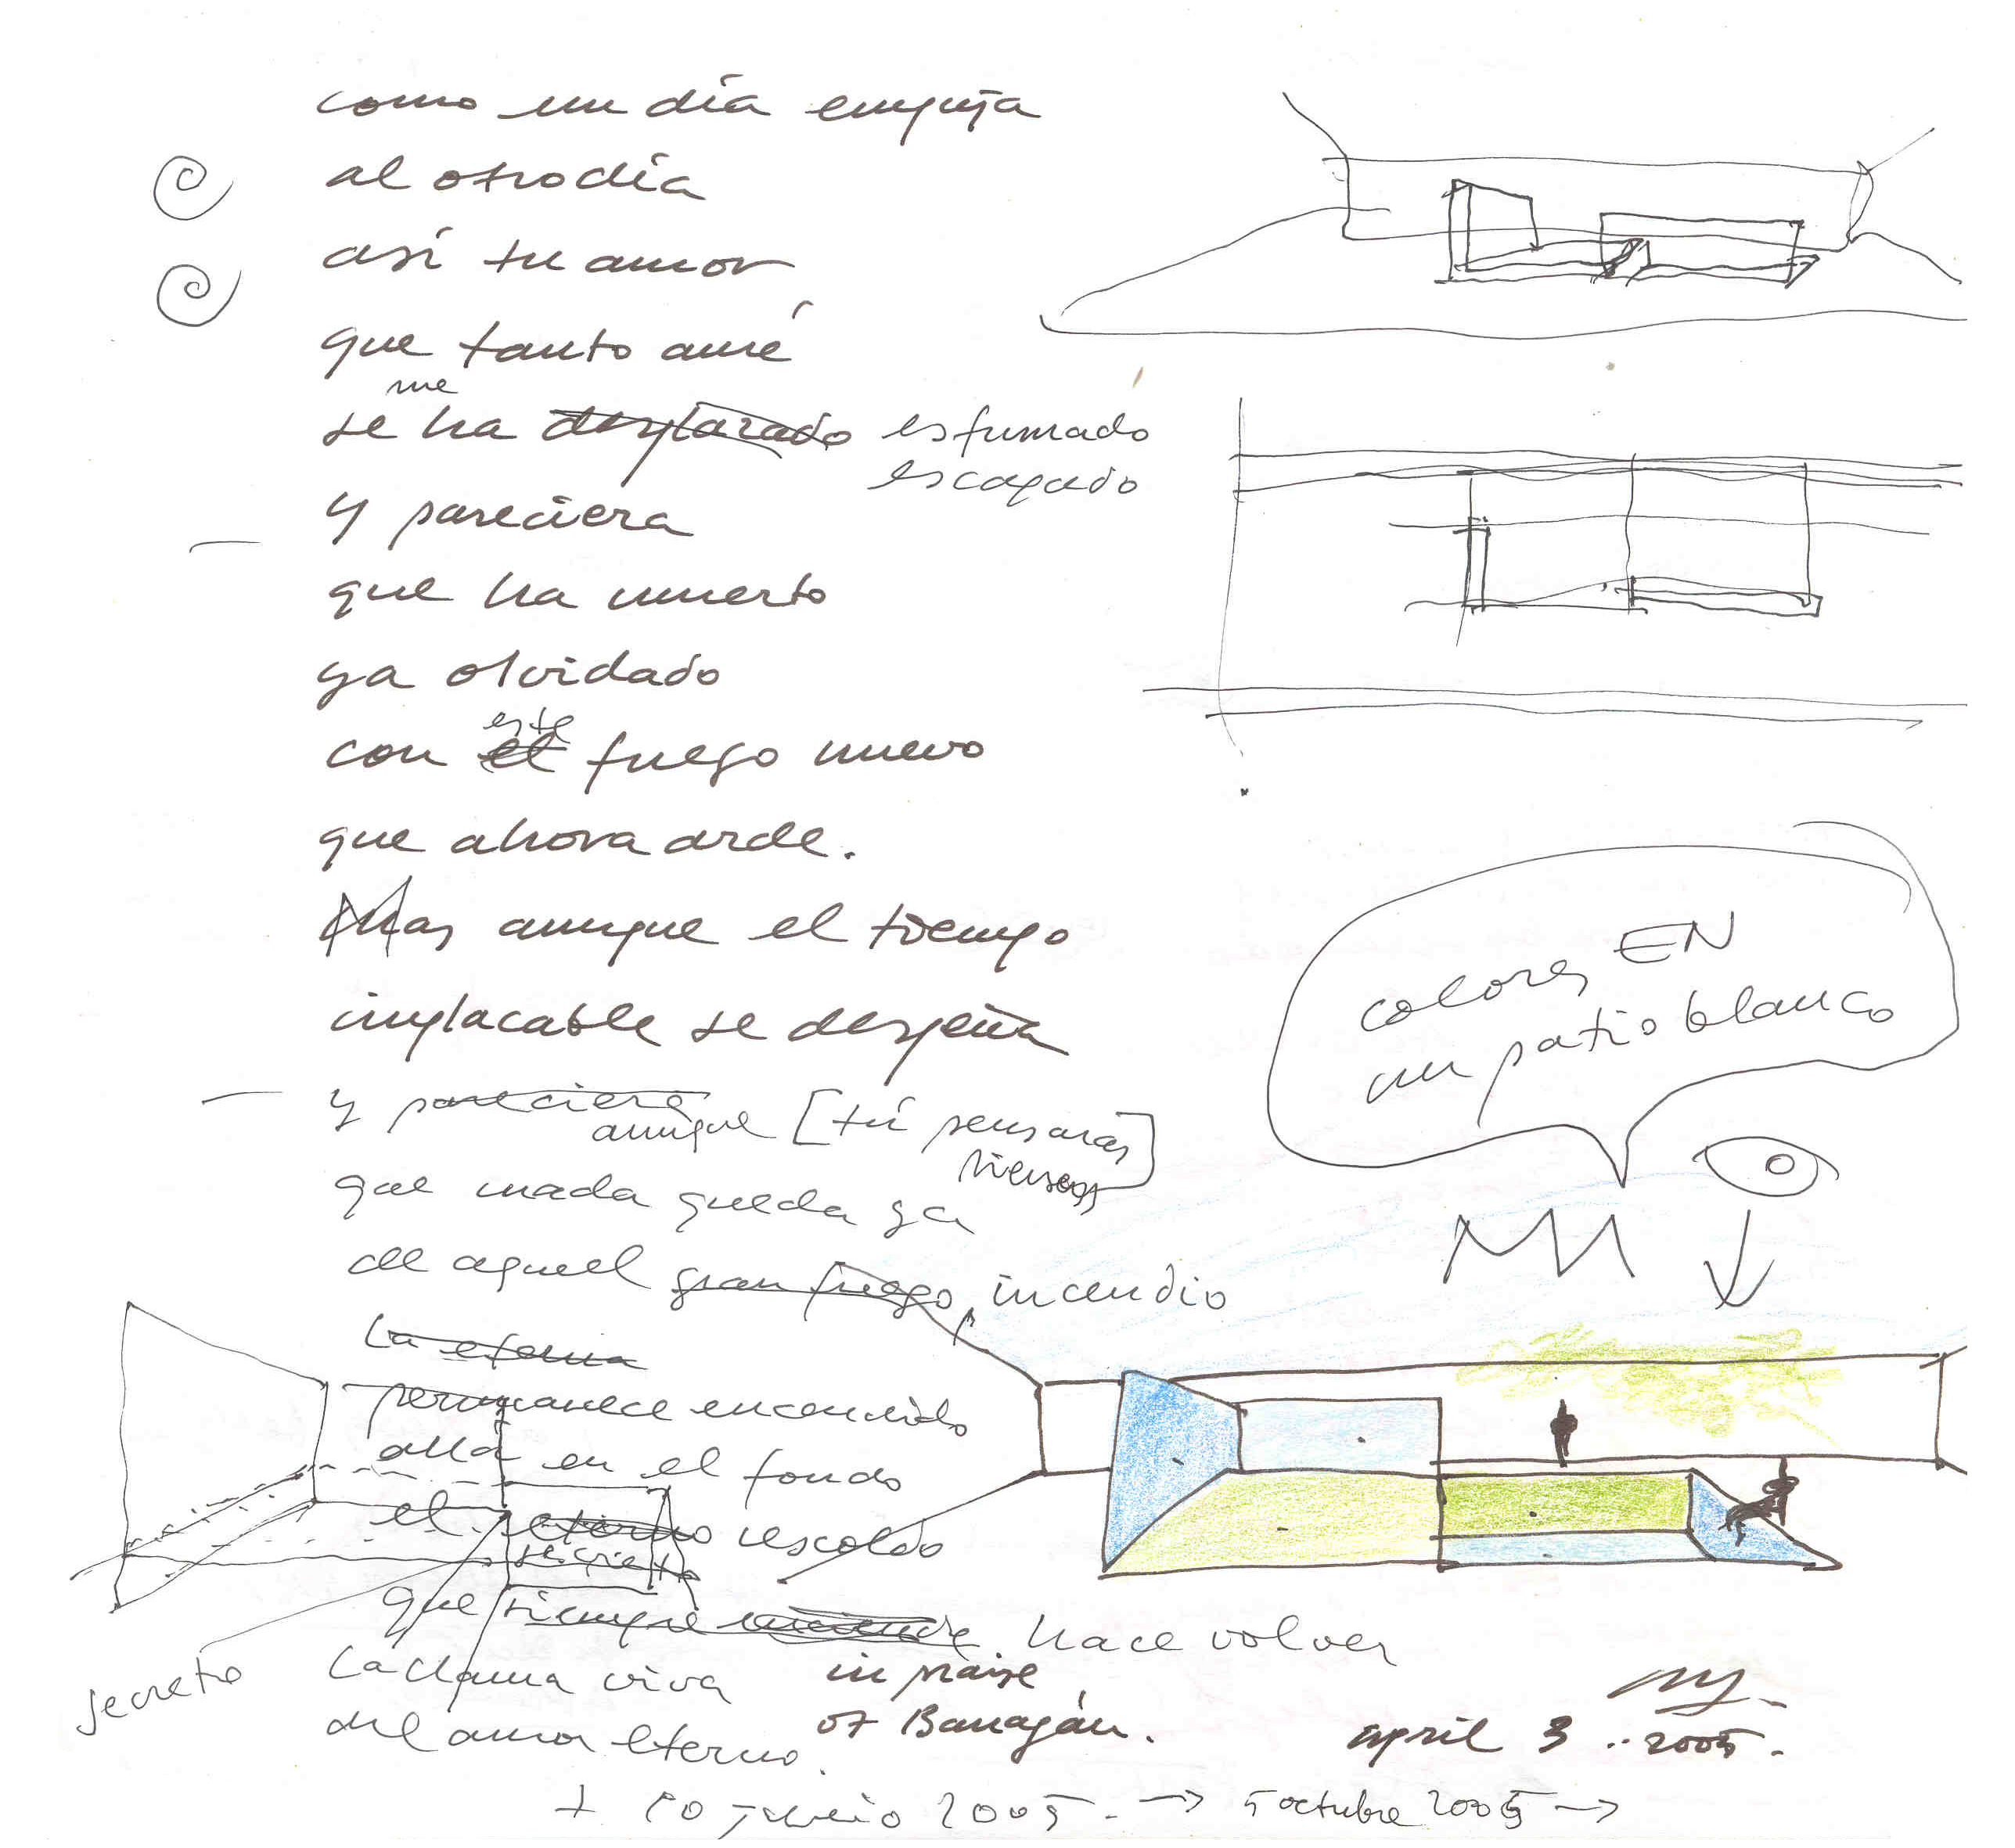 como un día empuja
al otro día
así tu amor
que tanto amé
me
se ha desplazado esfumado
escapado
y pareciera
que ha muerto
ya olvidado
este
con el fuego nuevo
que ahora arde.
Mas aunque el tiempo
implacable se despeña
y pareciera
aunque [tú pensaras]
piensas
que nada queda ya
de aquel gran fuego incendio
La eterna
permanece encendido
allá en el fondo
el eterno rescoldo
secreto
que siempre hace volver
secreto
La llama viva
del amor eterno.
in praise
of Barragán.
april 3 .. 2005.
+ junio 2005. → 5 octubre 2005 →
colores EN
un patio blanco